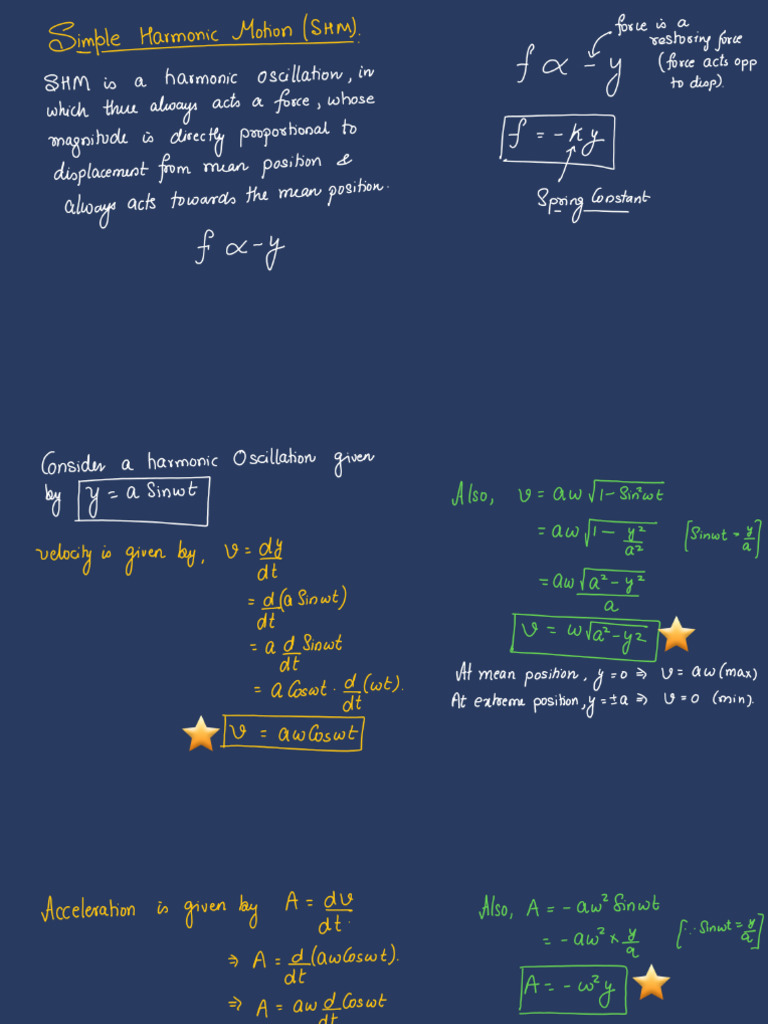 Simple Harmonic Motion (SHM).
SHM is a harmonic oscillation, in
which thue always acts a force, whose
magnitude is directly proportional to
displacement from mean position &
always acts towards the mean position.
f ∝ -y
force is a
restoring force
(force acts opp
to disp).
f ∝ - y
f = -ky
Spring Constant
Consider a harmonic Oscillation given
by y = a Sinωt
velocity is given by, v = dy/dt
= d/dt (a Sinωt)
= a d/dt Sinωt
= a Cosωt · d/dt (ωt).
v = aωCosωt
Also, v = aω√(1 - Sin²ωt)
= aω√(1 - y²/a²) [Sinωt = y/a]
= aω√(a² - y²)/a
v = ω√(a² - y²)
At mean position, y = 0 ⇒ v = aω (max)
At extreme position, y = ±a ⇒ v = 0 (min).
Acceleration is given by A = dv/dt.
⇒ A = d/dt (aωCosωt).
⇒ A = aω d/dt Cosωt
Also, A = -aω² Sinωt
= -aω² × y/a [∵ Sinωt = y/a]
A = -ω²y